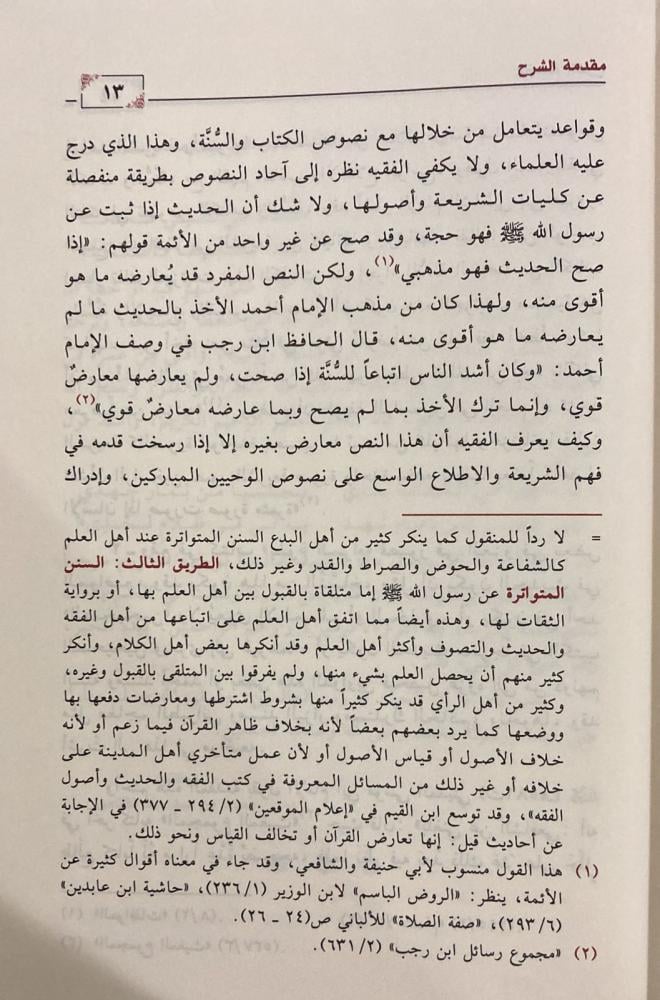 مقدمة الشرح
١٣
وقواعد يتعامل من خلالها مع نصوص الكتاب والسُّنَّة، وهذا الذي درج
عليه العلماء، ولا يكفي الفقيه نظره إلى آحاد النصوص بطريقة منفصلة
عن كليات الشريعة وأصولها، ولا شك أن الحديث إذا ثبت عن
رسول الله ﷺ فهو حجة، وقد صح عن غير واحد من الأئمة قولهم: «إذا
صح الحديث فهو مذهبي»(١)، ولكن النص المفرد قد يُعارضه ما هو
أقوى منه، ولهذا كان من مذهب الإمام أحمد الأخذ بالحديث ما لم
يعارضه ما هو أقوى منه، قال الحافظ ابن رجب في وصف الإمام
أحمد: «وكان أشد الناس اتباعاً للسُّنَّة إذا صحت، ولم يعارضها معارضٌ
قوي، وإنما ترك الأخذ بما لم يصح وبما عارضه معارضٌ قوي»(٢)،
وكيف يعرف الفقيه أن هذا النص معارض بغيره إلا إذا رسخت قدمه في
فهم الشريعة والاطلاع الواسع على نصوص الوحيين المباركين، وإدراك
= لا رداً للمنقول كما ينكر كثير من أهل البدع السنن المتواترة عند أهل العلم
كالشفاعة والحوض والصراط والقدر وغير ذلك، الطريق الثالث: السنن
المتواترة عن رسول الله ﷺ إما متلقاة بالقبول بين أهل العلم بها، أو برواية
الثقات لها، وهذه أيضاً مما اتفق أهل العلم على اتباعها من أهل الفقه
والحديث والتصوف وأكثر أهل العلم وقد أنكرها بعض أهل الكلام، وأنكر
كثير منهم أن يحصل العلم بشيء منها، ولم يفرقوا بين المتلقى بالقبول وغيره،
وكثير من أهل الرأي قد ينكر كثيراً منها بشروط اشترطها ومعارضات دفعها بها
ووضعها كما يرد بعضهم بعضاً لأنه بخلاف ظاهر القرآن فيما زعم أو لأنه
خلاف الأصول أو قياس الأصول أو لأن عمل متأخري أهل المدينة على
خلافه أو غير ذلك من المسائل المعروفة في كتب الفقه والحديث وأصول
الفقه»، وقد توسع ابن القيم في «إعلام الموقعين» (٢/ ٢٩٤ ـ ٣٧٧) في الإجابة
عن أحاديث قيل: إنها تعارض القرآن أو تخالف القياس ونحو ذلك.
(١) هذا القول منسوب لأبي حنيفة والشافعي، وقد جاء في معناه أقوال كثيرة عن
الأئمة، ينظر: «الروض الباسم» لابن الوزير (١/ ٢٣٦)، «حاشية ابن عابدين»
(٦/ ٢٩٣)، «صفة الصلاة» للألباني ص(٢٤ ـ ٢٦).
(٢) «مجموع رسائل ابن رجب» (٢/ ٦٣١).